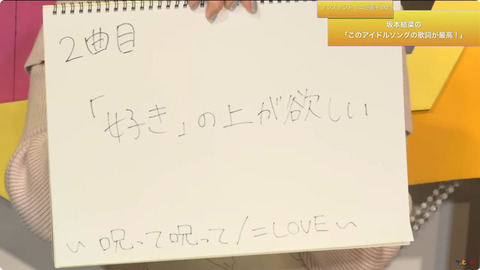 坂本結菜の
「このアイドルソングの歌詞が最高！」
2曲目
「好き」の上が欲しい
〃 呪って呪って/=LOVE 〃